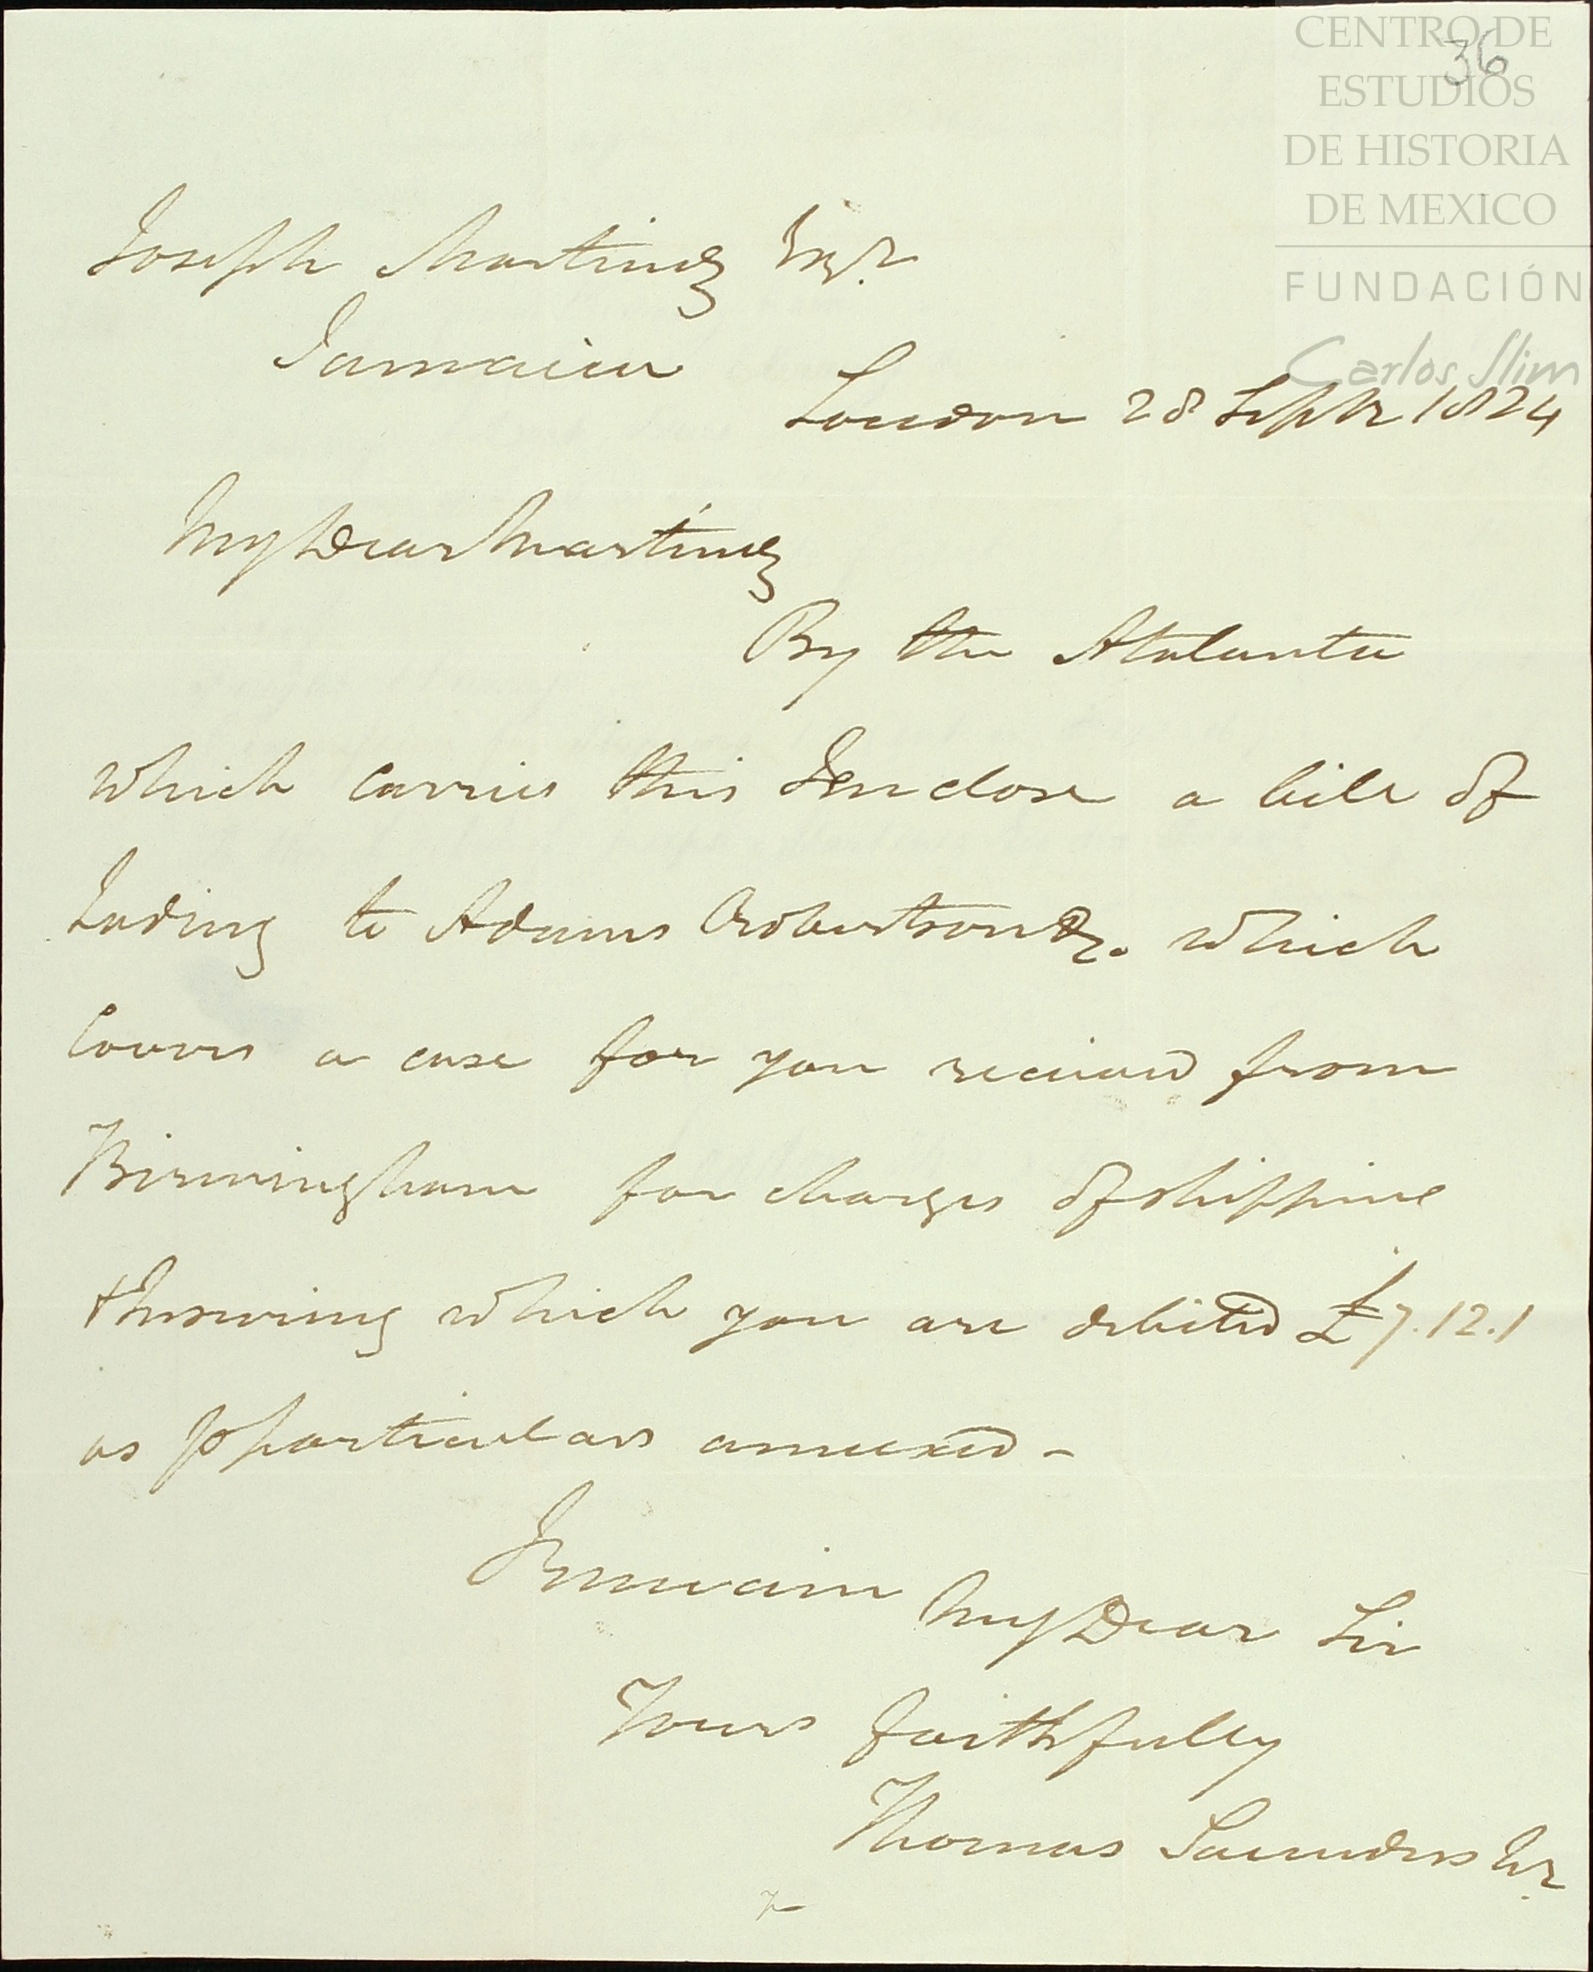 CENTRO DE
36
ESTUDIOS
DE HISTORIA
DE MEXICO
FUNDACIÓN
Carlos Slim
Joseph Martinez Esqr.
Jamaica
London 28 Septr 1824
My Dear Martinez
By the Atalanta
which carries this I enclose a bill of
Lading to Adams Robertson &c. which
Covers a case for you received from
Birmingham for charges of shipping
which you are debited £7.12.1
as p particulars annexed -
I remain My Dear Sir
Yours faithfully
Thomas Saunders Jr.